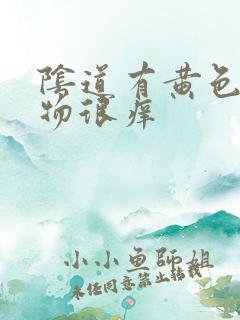 陰道有黄色
物很痒
小小鱼師姐
未经同意禁止转载